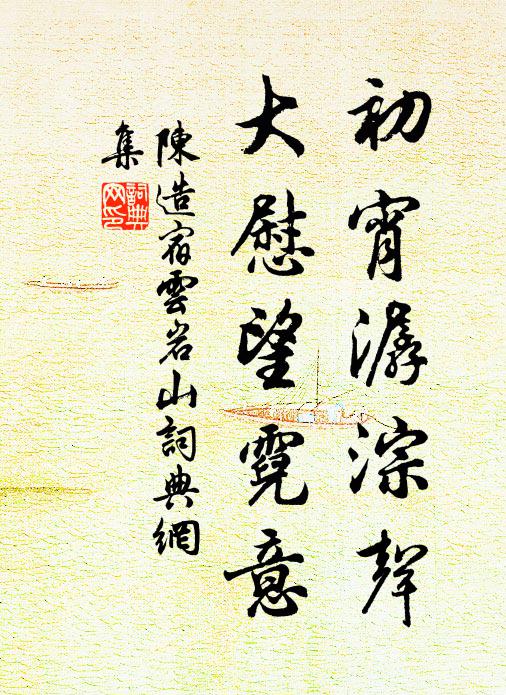 初宵潺淙聲
大慰望霓意
陳造宿雲岩山詞典網
集
詞典
网印